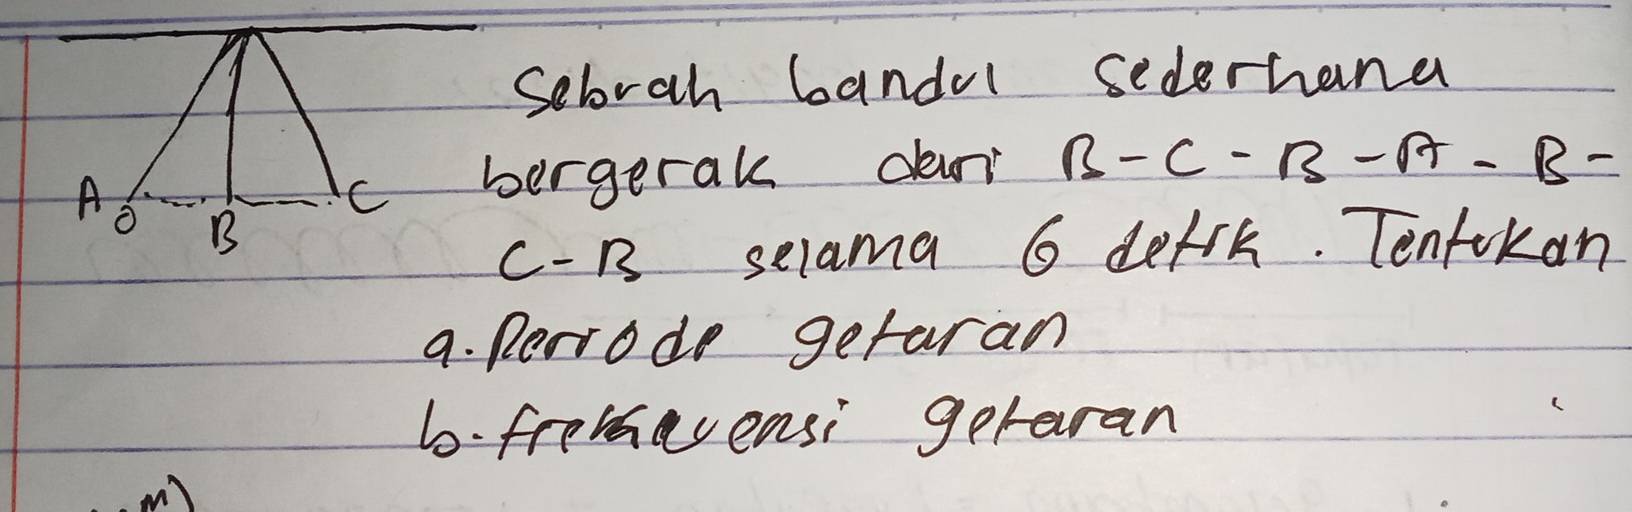 Sebuah bandul sederhana
bergerak dari B - C - B - A - B -
C - B selama 6 detik. Tentukan
A
B
C
a. Periode getaran
b. frekuensi getaran
m)